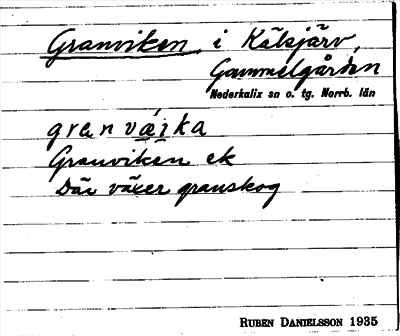 Granviken, i Kälsjärv,
Gammelgården
Nederkalix sn o. tg. Norrb. län
granvæika
Granviken ek
Där växer granskog
RUBEN DANIELSSON 1935